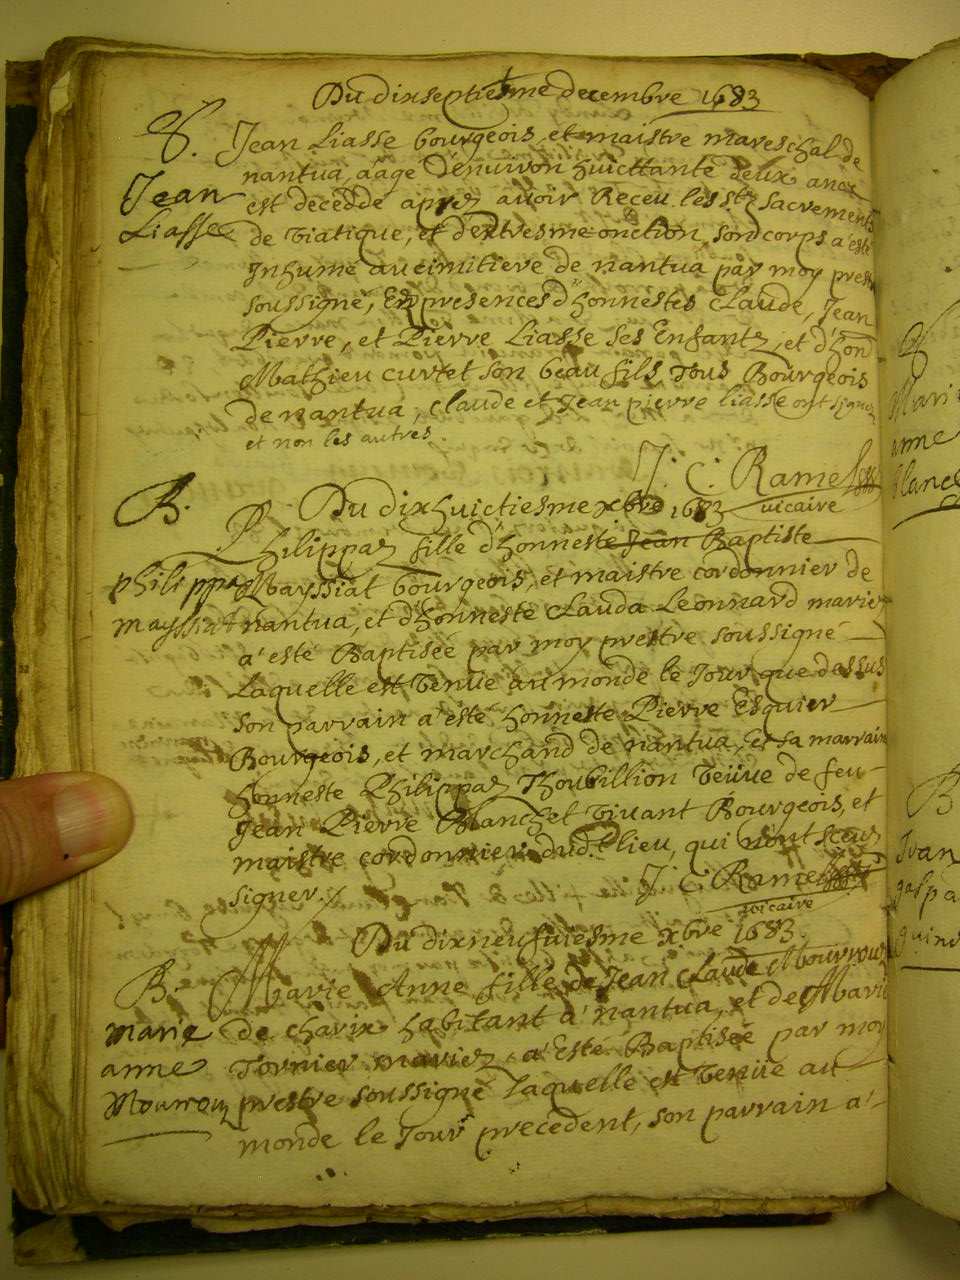 Du dixseptiesme decembre 1683
S.
Jean
Liasse
Jean Liasse bourgeois, et maistre mareschal de
nantua, aâgé d'enuiron huicttante deux ancz
est decedde aprez auoir Receu les Stz sacrements
de Viatique, et d'extresme onction, son corps a esté
Inhumé au cimitiere de nantua par moy prest
soussigné, En presences d'honnestes Claude, Jean
Pierre, et Pierre Liasse ses Enfantz, et d'hon
Mathieu Curtet son beau fils Tous Bourgeois
de nantua, Claude et Jean pierre liasse ont signez
et non les autres
J. C. Ramel
vicaire
B.
philippaz
mayssiat
Du dixhuictiesme xbre 1683
Philippaz fille d'honneste Jean Baptiste
Mayssiat bourgeois, et maistre cordonnier de
nantua, et d'honneste Clauda Leonnard mariez
a'esté Baptisée par moy prestre soussigné
Laquelle est Venüe au monde le Jour que dessus
son parrain a'esté honneste Pierre Esquier
Bourgeois, et marchand de nantua, Et sa marrain
honneste Philippaz Thoubillion Veüve de feu
Jean Pierre Blanchet Vivant Bourgeois, et
maistre cordonnier dud. lieu, qui n'ont sceuz
signer
J. C. Ramel
vicaire
Du dixneufuiesme xbre 1683.
B.
marie
anne
Mourrouz
Marie Anne fille de Jean Claude Mourrouz
de charix habitant a' nantua, et de Marie
Tornier mariez a'esté Baptisée par moy
prestre soussigné Laquelle est Venüe au
monde le Jour precedent, son parrain a'
S
Mari
anne
Blanc
B
Jean
gaspa
guin